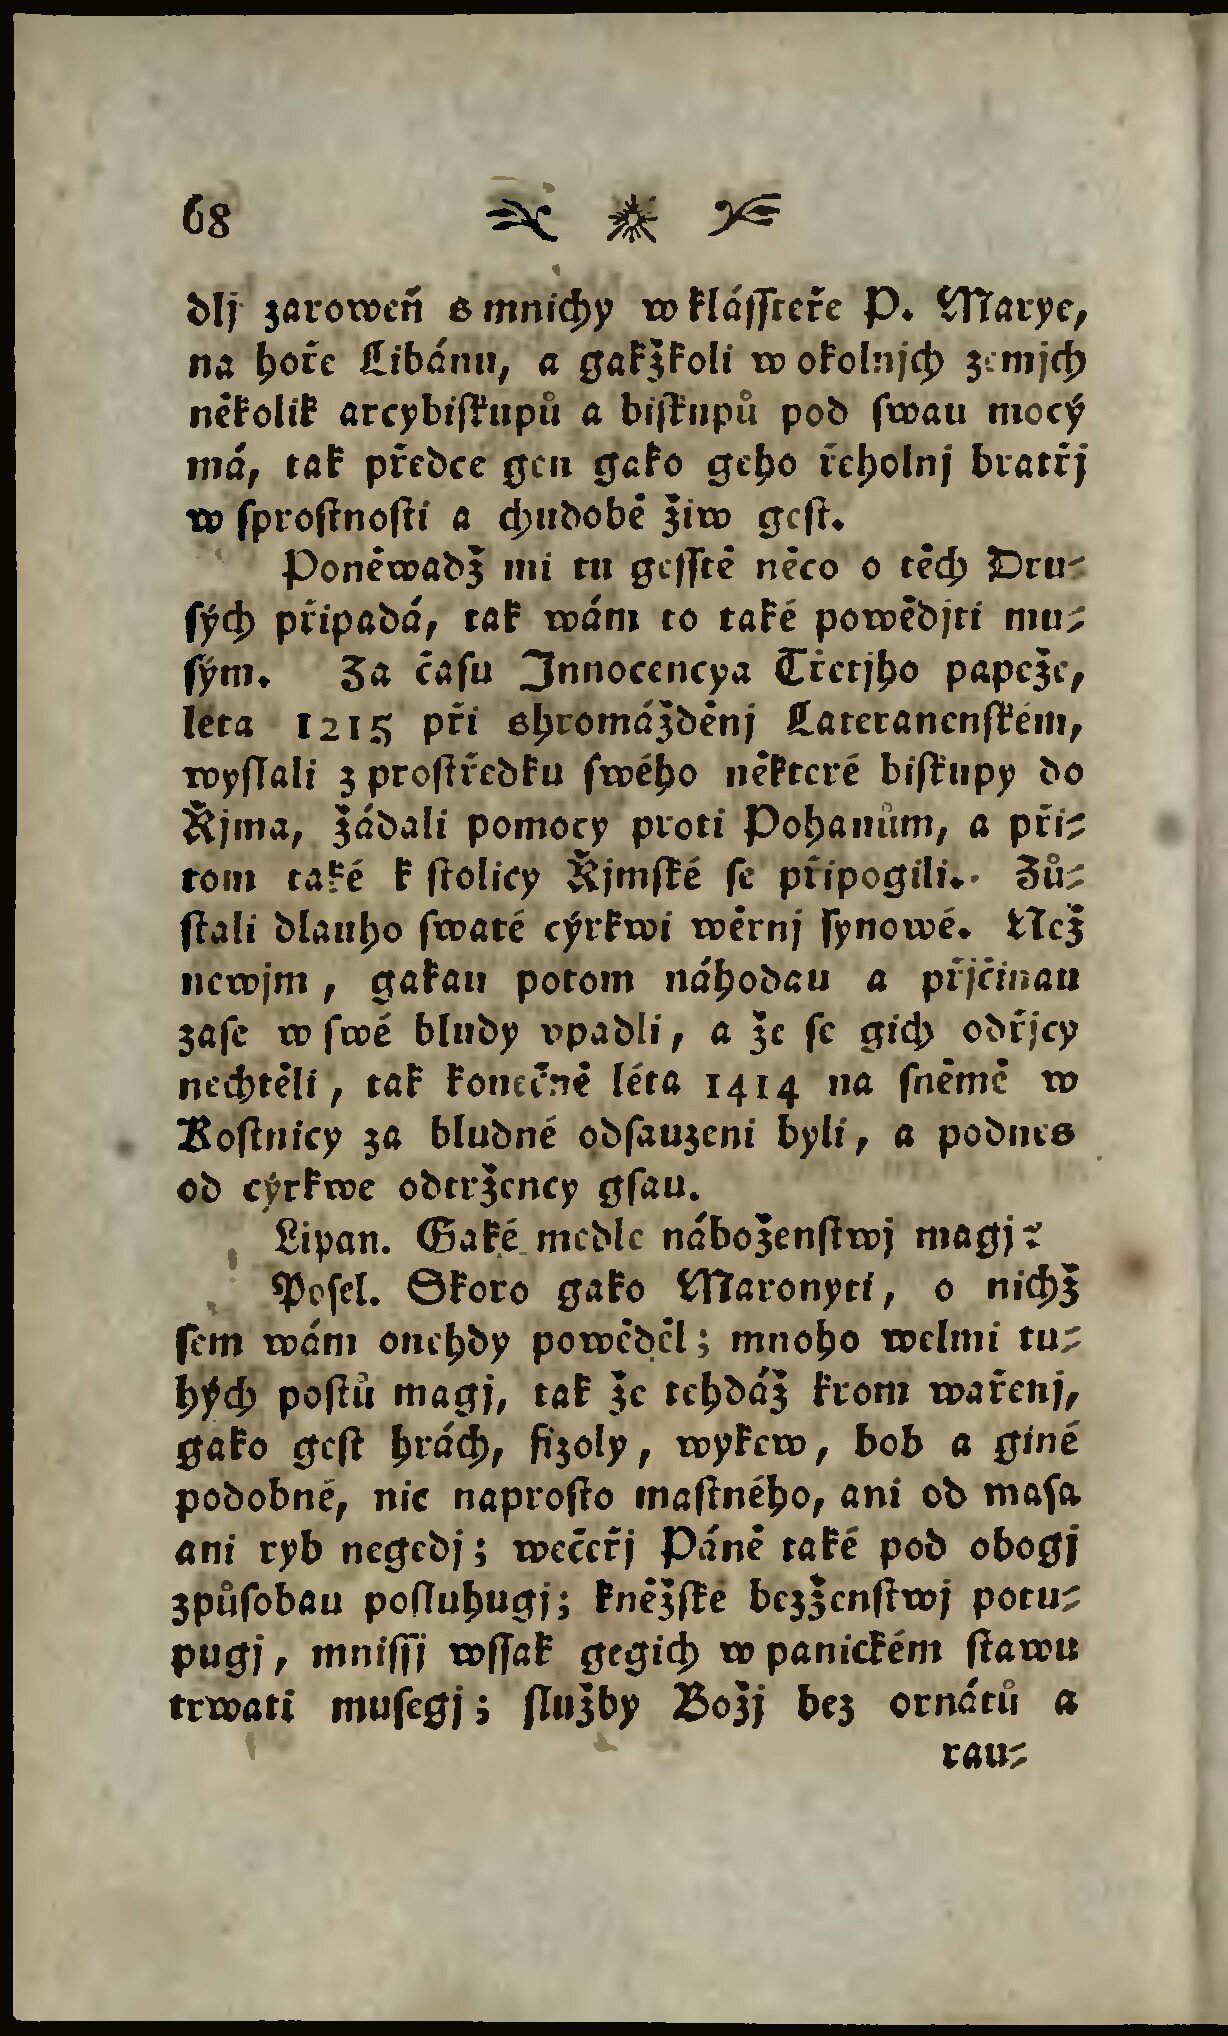 68
dlj zaroweň s mnichy w klásſteře P. Marye,
na hoře Libánu, a gakžkoli w okolnjch zemjch
několik arcybiſkupů a biſkupů pod ſwau mocý
má, tak předce gen gako geho řeholnj bratřj
w ſproſtnoſti a chudobě žiw geſt.
Poněwadž mi tu gesſtě něco o těch Dru-
ſých připadá, tak wám to také powědjti mu-
ſým. Za čaſu Innocencya Třetjho papeže,
léta 1215 při shromážděnj Lateranenſkém,
wyſlali z proſtředku ſwého některé biſkupy do
Řjma, žádali pomocy proti Pohanům, a při-
tom také k ſtolicy Řjmſké ſe připogili. Zů-
ſtali dlauho ſwaté cýrkwi wěrnj ſynowé. Než
newjm, gakau potom náhodau a přjčinau
zaſe w ſwé bludy vpadli, a že ſe gich odřjcy
nechtěli, tak konečně léta 1414 na ſněmě w
Koſtnicy za bludné odſauzeni byli, a podnes
od cýrkwe odtržency gſau.
Lipan. Gaké medle náboženſtwj magj?
Poſel. Skoro gako Maronyti, o nichž
ſem wám onehdy powěděl; mnoho welmi tu-
hých poſtů magj, tak že tehdáž krom wařenj,
gako geſt hrách, fizoly, wykew, bob a giné
podobné, nic naproſto maſtného, ani od maſa
ani ryb negedj; wečeřj Páně také pod obogj
způſobau poſluhugj; kněžſké bezženſtwj potu-
pugj, mniſſj wſſak gegich w panickém ſtawu
trwati muſegj; ſlužby Božj bez ornátů a
rau-